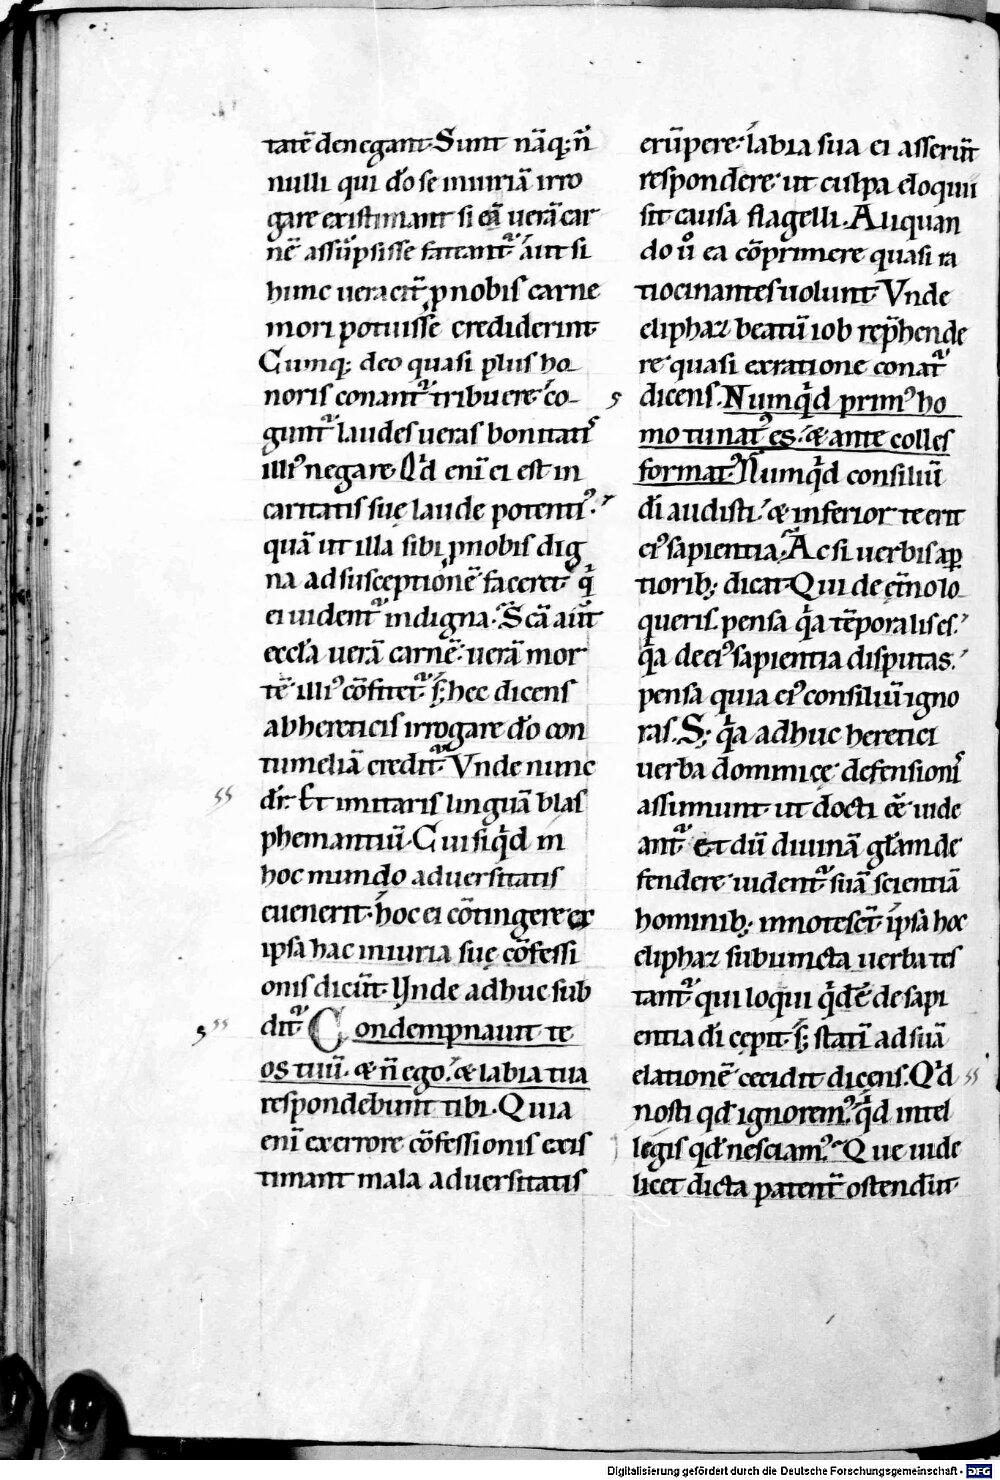 tatē denegant. Sunt nāq; ñ
nulli qui dō se iniuriā irro
gare existimant si eā uerā car
nē assūpsisse fateant᷑. aut si
hunc uerácit̄ ꝓ nobis carne
mori potuisse crediderint.
Cumq; deo quasi plus ho
noris conant᷑ tribuere. co-
gunt᷑ laudes ueras bonitati᷒
illi᷒ negare. Qd̄ enī ei est in
caritatis suę laude potenti᷒.
quā ut illa sibi ꝓ nobis dig
na ad susceptionē faceret. q̄
ei uident᷑ indigna. Scā aut̄
eccła uerā carnē. uerā mor
tē illi᷒ cōfitet᷑. s; hec dicens
ab hereticis irrogare dō con
tumeliā credit᷑. Vnde nunc
dr̄. Et imitaris linguā blas
phemantiū. Cui siqd̄ in
hoc mundo aduersitatis
euenerit. hoc ei cōtingere ex
ipsa hac iniuria suę cōfessi
onis dicūt. Vnde adhuc sub
dit᷑. Condempnauit te
os tuū. & ñ ego. & labia tua
respondebunt tibi. Quia
enī ex errore cōfessionis exis
timant mala aduersitatis
erūpere. labia sua ei asserūt
respondere. ut culpa eloquii
sit causa flagelli. Aliquan
do ů ea cōprimere quasi ra
tiocinantes uolunt. Vnde
eliphaz beatū iob rep̄hende
re quasi ex ratione conat᷑
dicens. Numqd̄ prim᷒ ho
mo tu nat᷒ es. & ante colles
format᷒. Numqd̄ consiliū
dī audisti. & inferior te erit
ei᷒ sapientia. Ac si uerbis ap
tiorib; dicat. Qui de ęt̄no lo
queris. pensa qa tēporalis es.
qa de ei᷒ sapientia disputas.
pensa quia ei᷒ consiliū igno
ras. S; qa adhuc heretici
uerba dominicę defensioni᷒
assumunt. ut docti ēē uide
ant᷑. Et dū diuinā głam de
fendere uident᷑. suā scientiā
hominib; innotesc̄t. ipsa hoc
eliphaz subuincta uerba tes
tant᷑. qui loqui qdē de sapi
entia dī cępit. s; statī ad suā
elationē cecidit dicens. Qd̄
nosti qd̄ ignorem᷒. qd̄ intel
legis qd̄ nesciam᷒. Que uide
licet dicta patent̄ ostendūt.
Digitalisierung gefördert durch die Deutsche Forschungsgemeinschaft - DFG